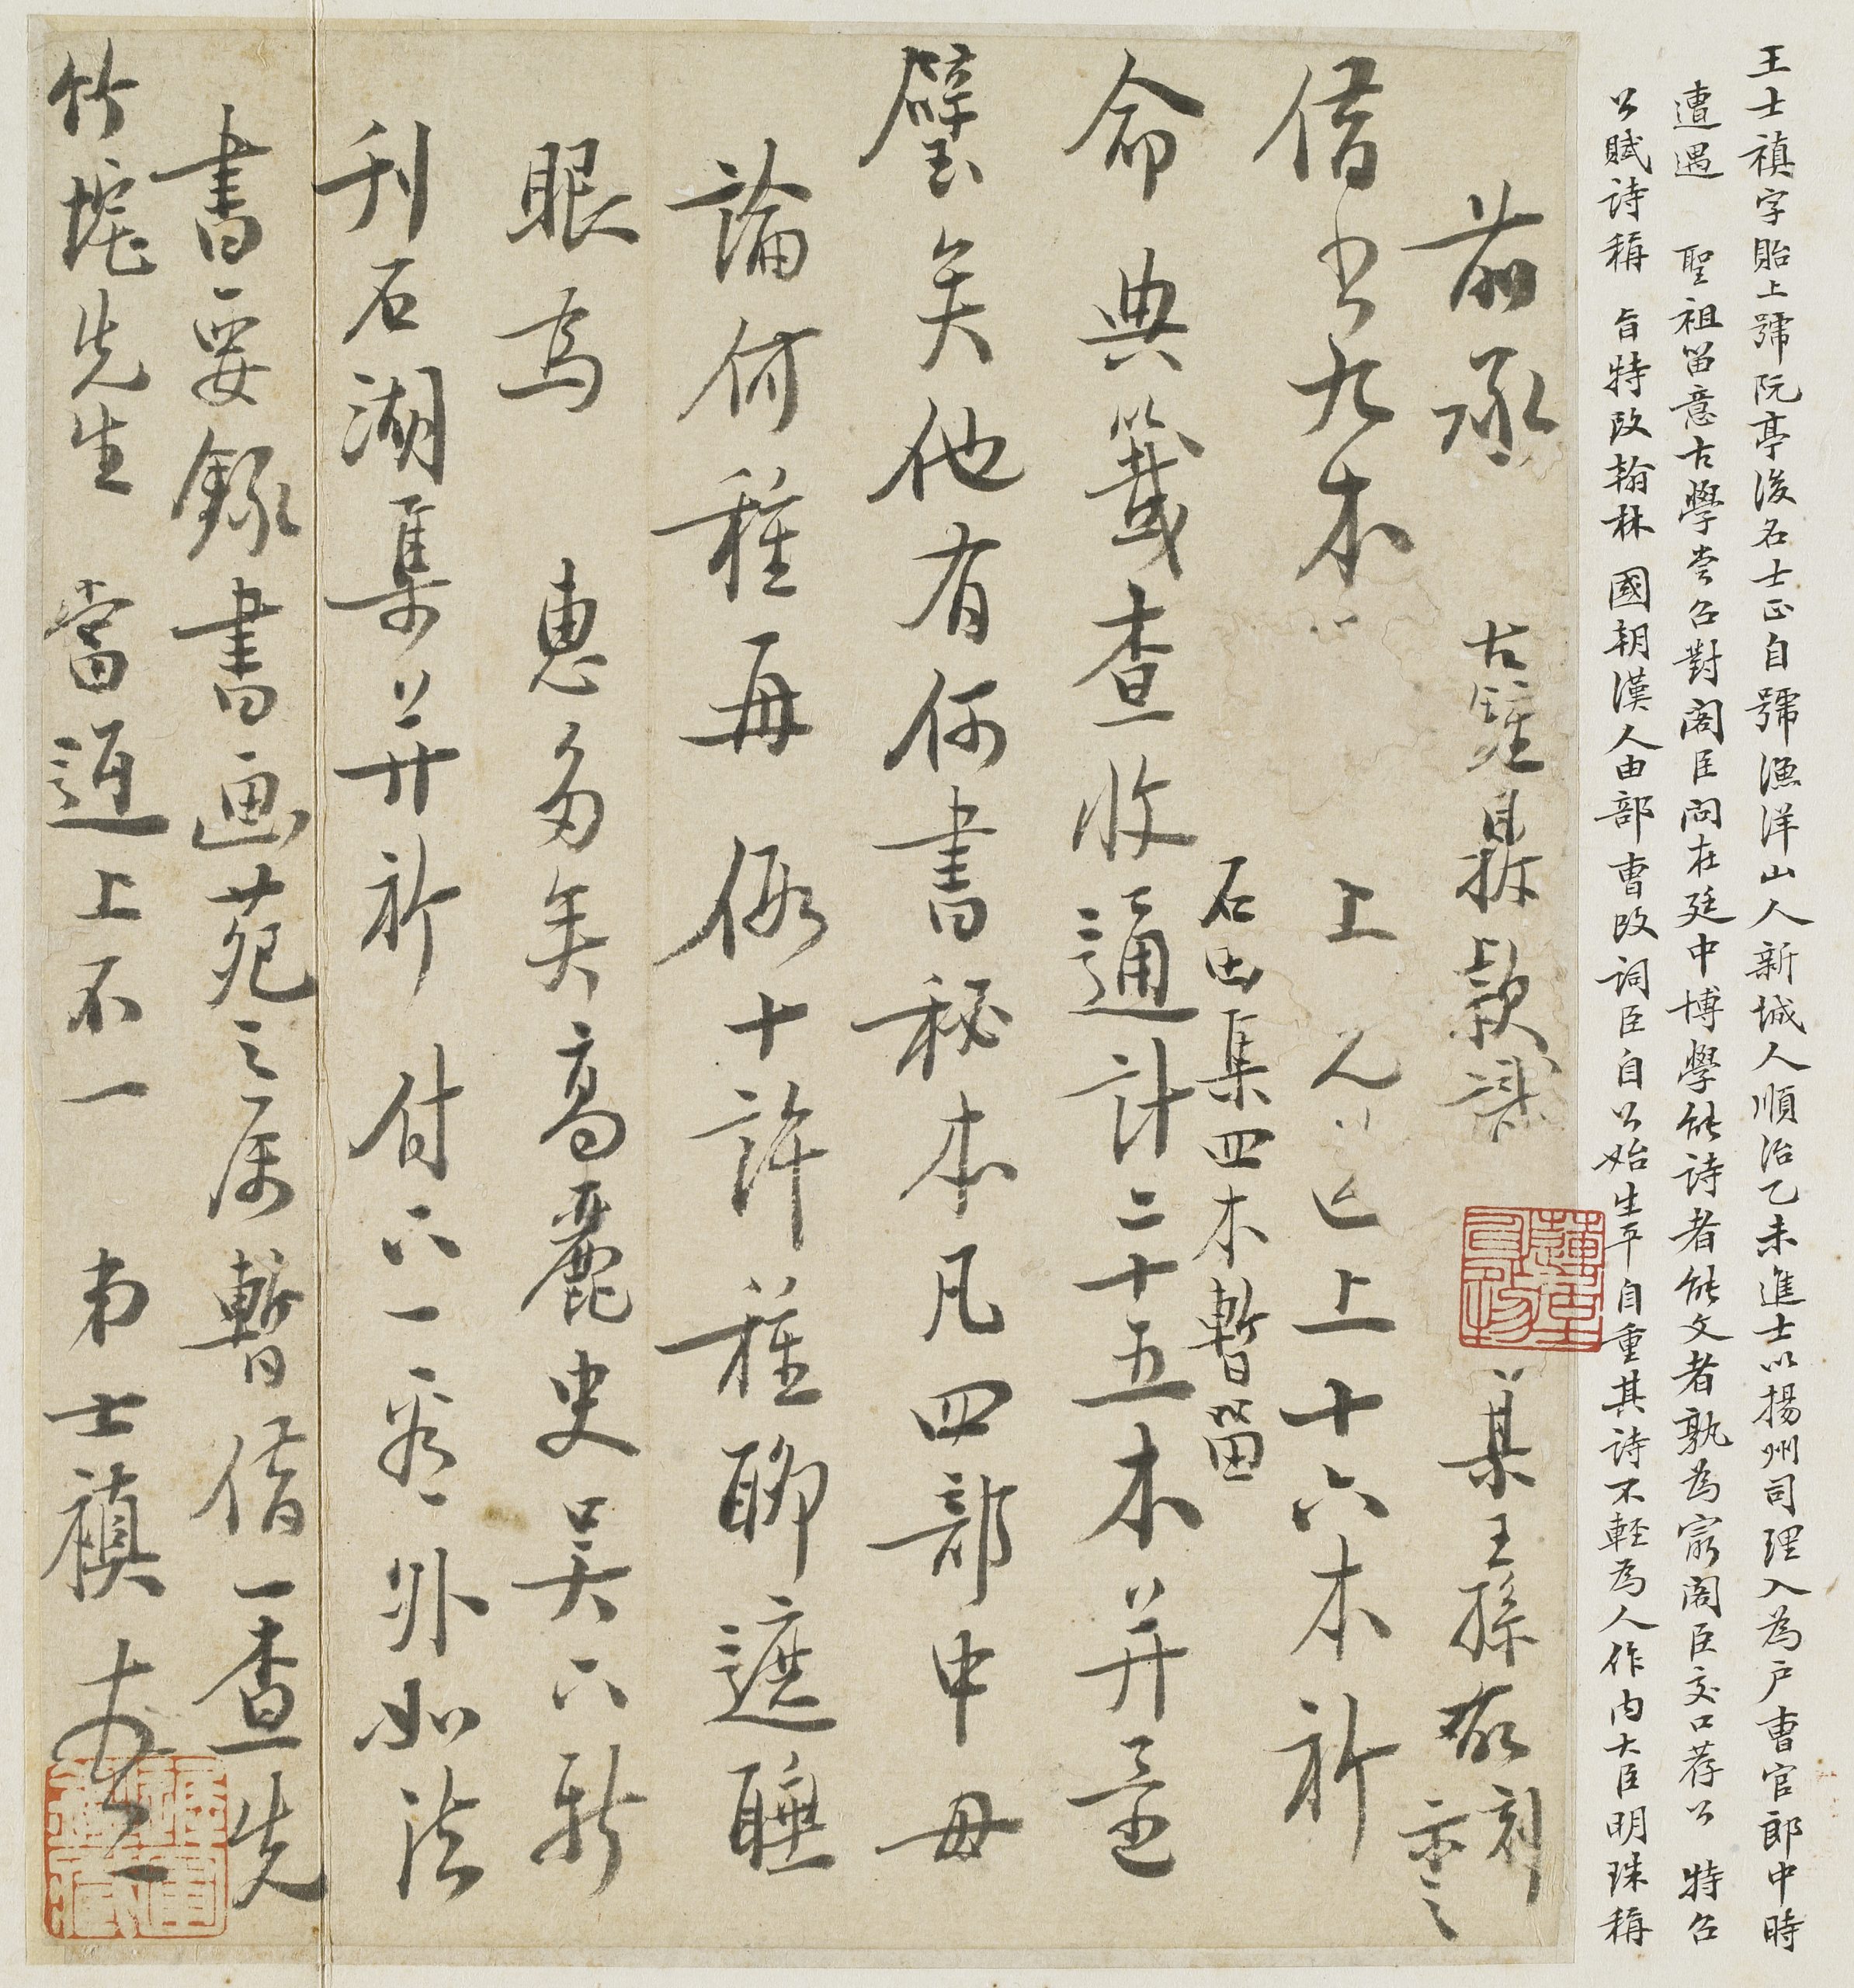 王士禛字貽上號阮亭後名士正自號漁洋山人新城人順治乙未進士以揚州司理入為戶曹官郎中時
遭遇 聖祖留意古學嘗召對閣臣問在廷中博學能詩者能文者孰為最閣臣交口荐公 特召
公賦詩稱 旨特改翰林 國朝漢人由部曹改詞臣自公始生平自重其詩不輕為人作內大臣明珠稱
前承 古鐘鼎款識 王孫 刻
借書九本 上 已上十六本祈
石田集四本暫留
命典籤查收通計二十五本并
璧矣他有何書秘本凡四部中毋
論何種再 假十許種聊遮睡
眼為 惠多矣高麗史吳六新
刊石湖集并祈 付下一看外如法
書要錄書画苑之屬暫借一查先
竹垞先生 當逕上不一 弟士禛